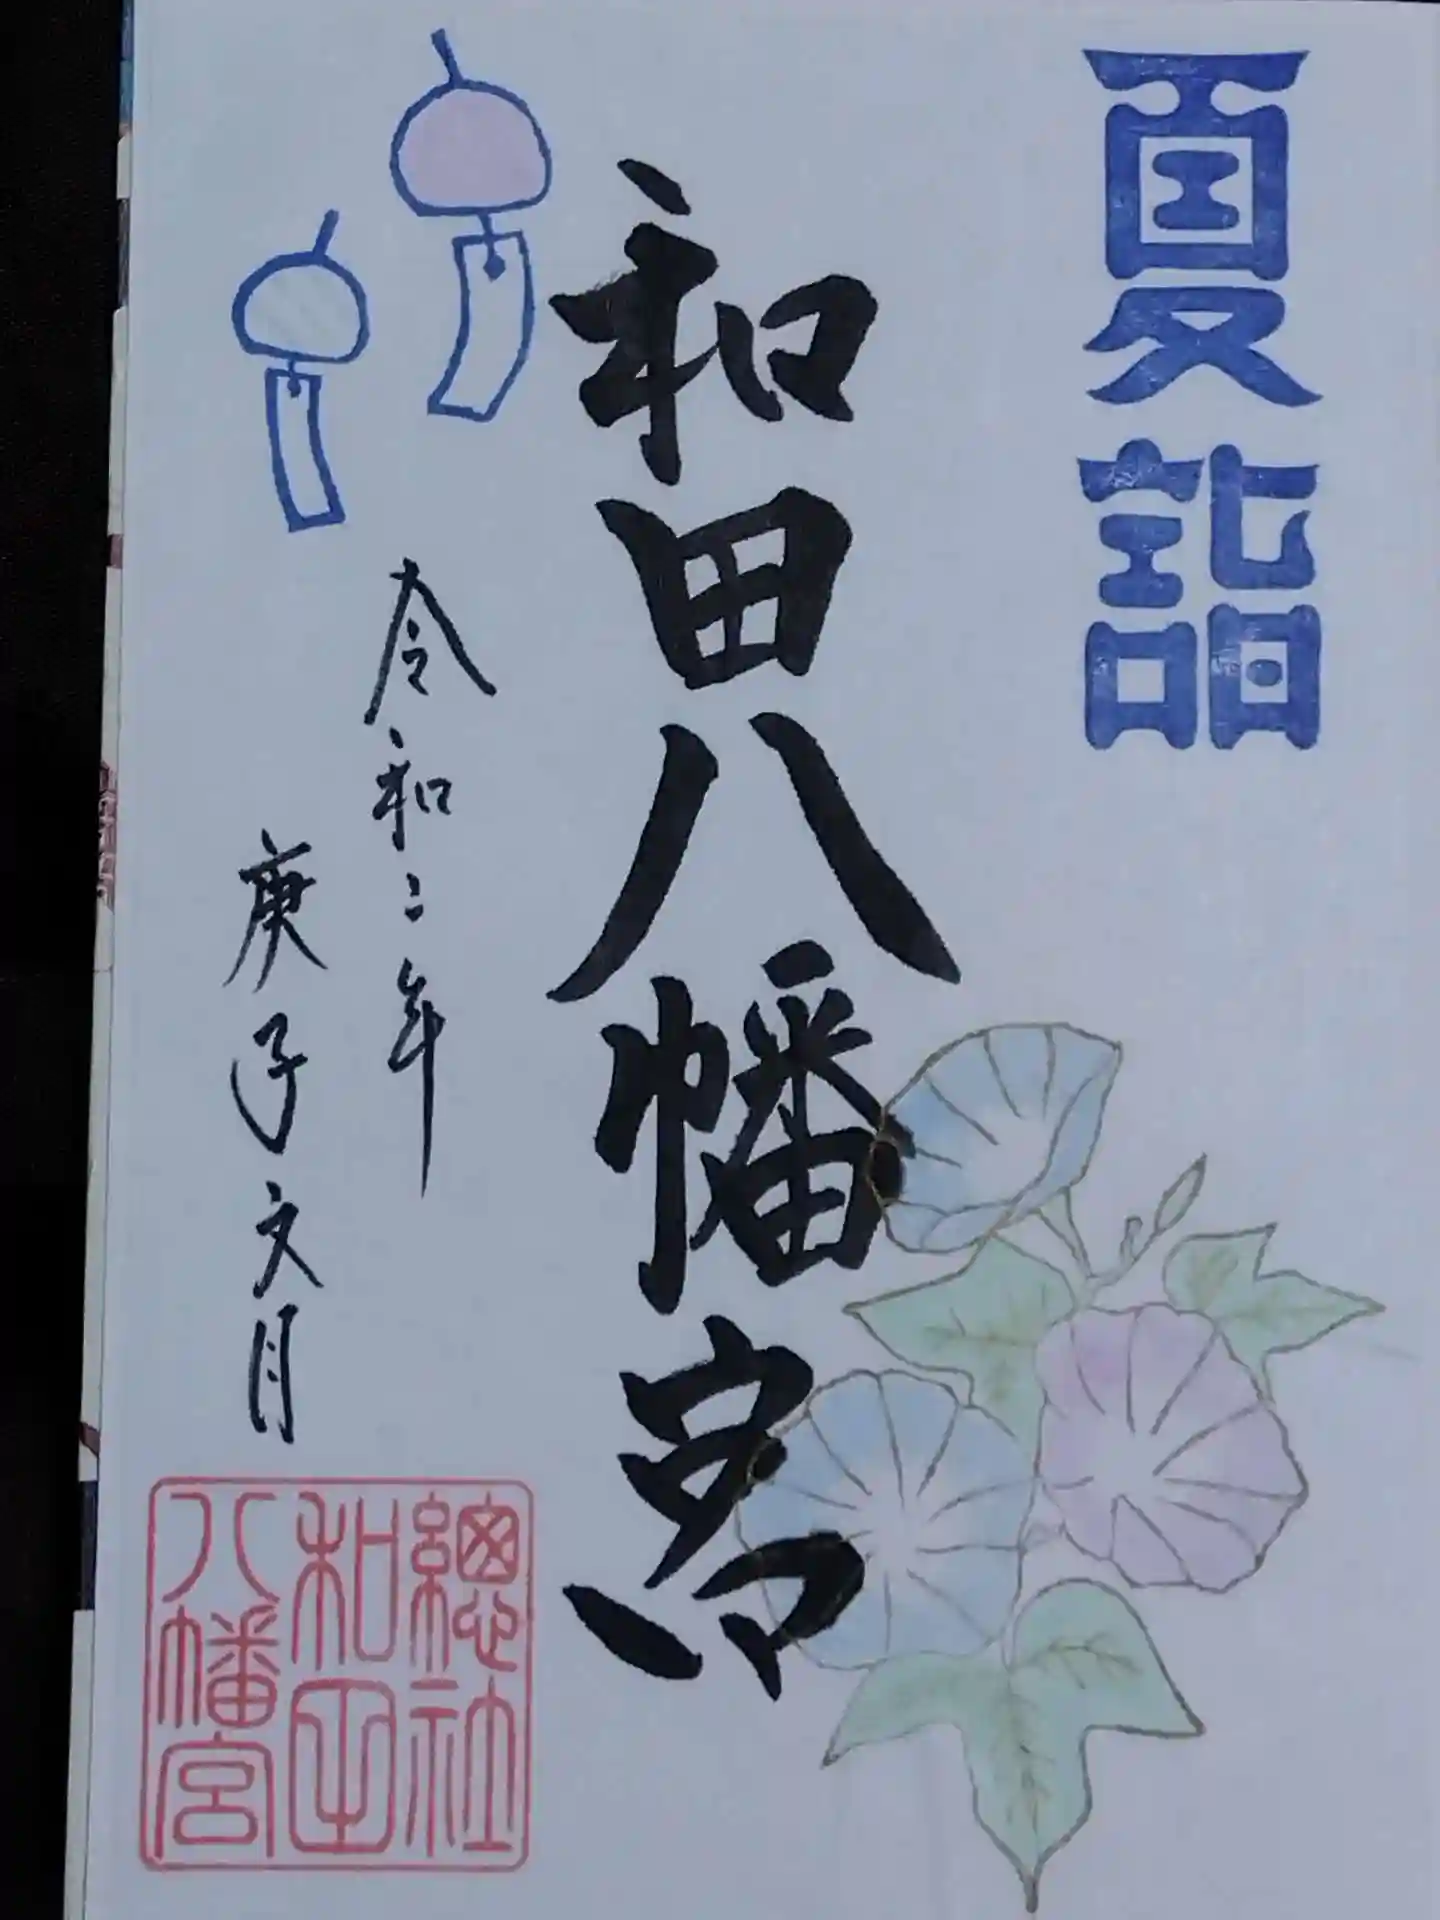 夏詣
和田八幡宮
令和二年
庚子文月
總社
和田
八幡宮